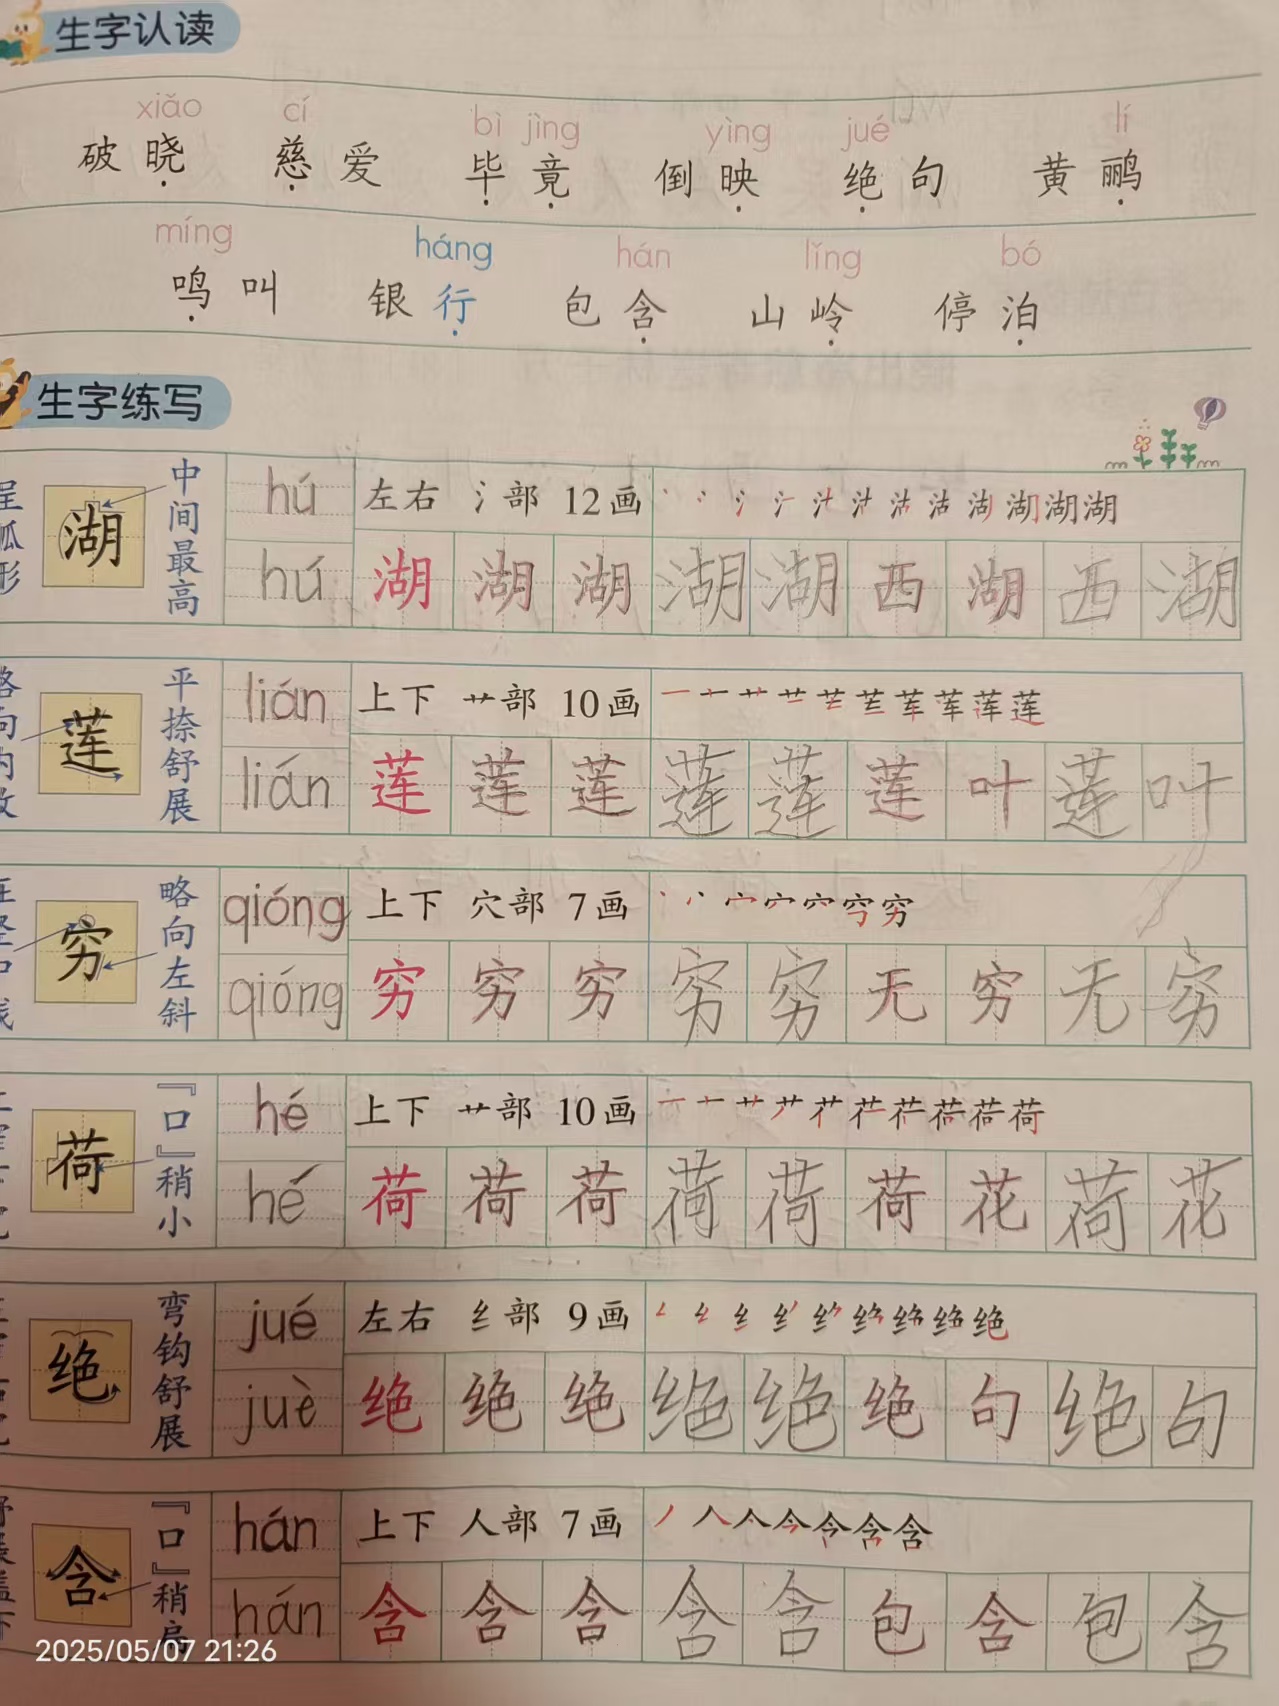 生字认读
xiǎo cí bì jìng yìng jué lí
破晓 慈爱 毕竟 倒映 绝句 黄鹂
míng háng hán lǐng bó
鸣叫 银行 包含 山岭 停泊
生字练写
湖 中间最高
hú 左右 氵部 12画
湖湖湖
hú 湖 湖 湖 湖 湖 西 湖 西 湖
莲 平捺舒展
lián 上下 艹部 10画
莲
lián 莲 莲 莲 莲 莲 莲 叶 莲 叶
穷 略向左斜
qióng 上下 穴部 7画
穷
qióng 穷 穷 穷 穷 穷 无 穷 无 穷
荷 『口』稍小
hé 上下 艹部 10画
荷
hé 荷 荷 荷 荷 荷 荷 花 荷 花
绝 弯钩舒展
jué 左右 纟部 9画
绝
juè 绝 绝 绝 绝 绝 绝 句 绝 句
含 『口』稍扁
hán 上下 人部 7画
含
hán 含 含 含 含 含 包 含 包 含
2025/05/07 21:26